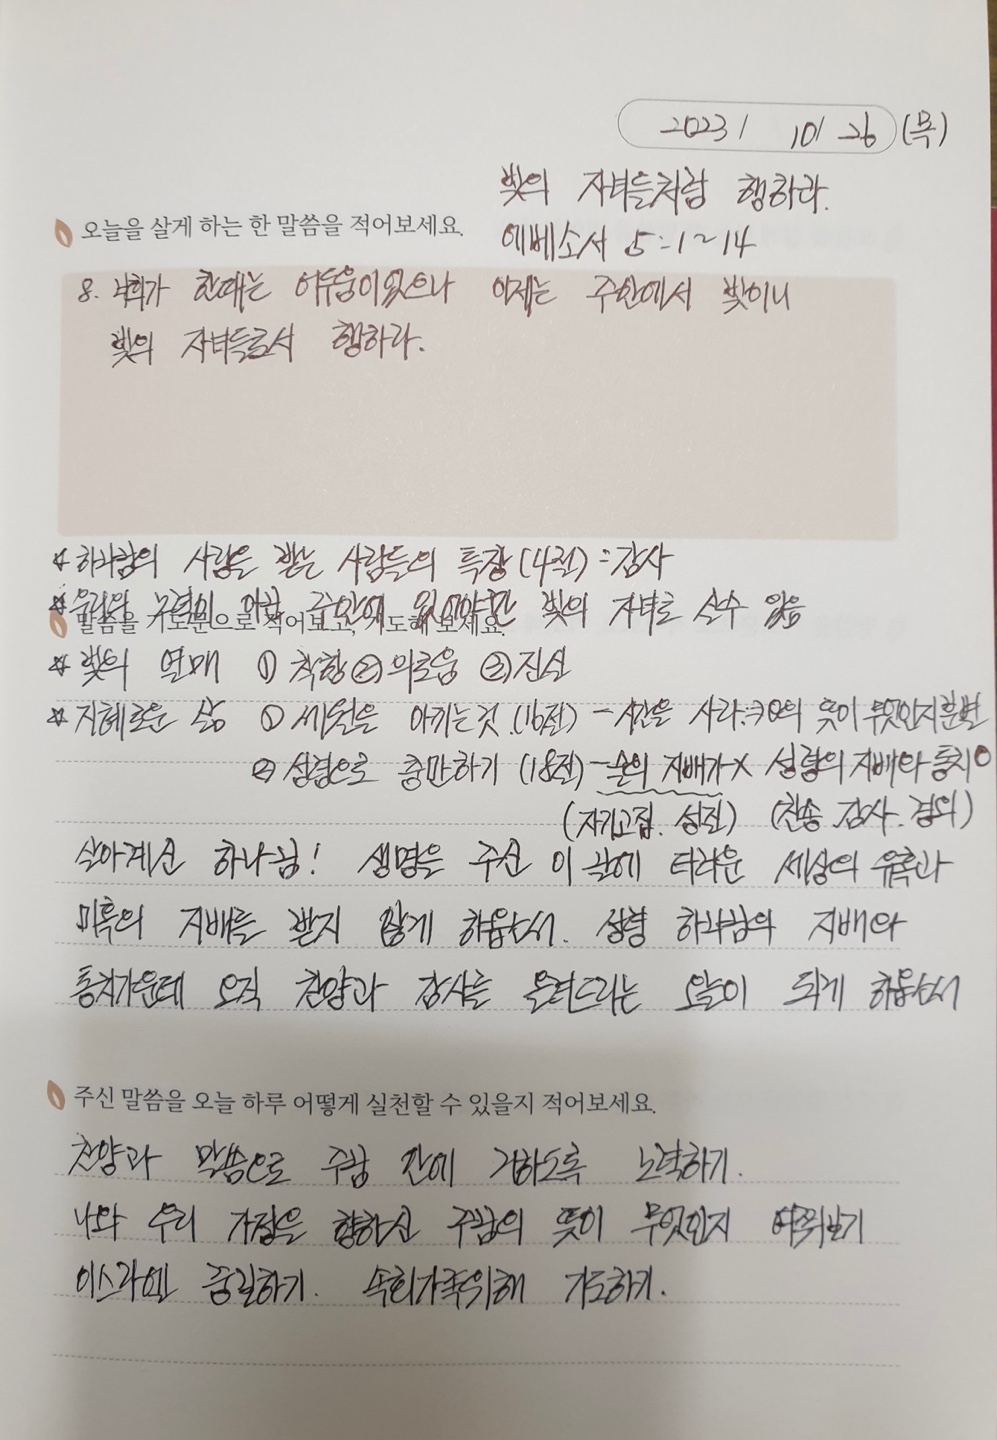 2023/ 10/ 26 (목)
빛의 자녀들처럼 행하라.
오늘을 살게 하는 한 말씀을 적어보세요.
에베소서 5:1~14
8. 너희가 한때는 어두움이었으나 이제는 주안에서 빛이니
빛의 자녀들로서 행하라.
☆ 하나님의 사랑을 받는 사람들의 특징(4절) : 감사
☆ 우리의 노력이 아닌 주안에 있어야만 빛의 자녀로 살수 있음
말씀을 기도문으로 적어보고, 기도해 보세요.
☆ 빛의 열매 ① 착함 ② 의로움 ③ 진실
☆ 지혜로운 삶 ① 세월을 아끼는것 (16절) - 시간을 사라. 주의 뜻이 무엇인지 분별
② 성령으로 충만하기 (18절) - 술의 지배가 X 성령의 지배와 통치 O
(자기고집. ) (찬송. 감사. 경외)
살아계신 하나님! 생명을 주신 이 날에 세상의 유혹과
미혹의 지배를 받지 않게 하옵소서. 성령 하나님의 지배와
통치가운데 오직 찬양과 감사를 올려드리는 오늘이 되게 하옵소서
주신 말씀을 오늘 하루 어떻게 실천할 수 있을지 적어보세요.
찬양과 말씀으로 주님 안에 거하도록 노력하기.
나와 우리 가정을 향하신 주님의 뜻이 무엇인지 여쭤보기
이스라엘 중보하기. 속회가족위해 기도하기.